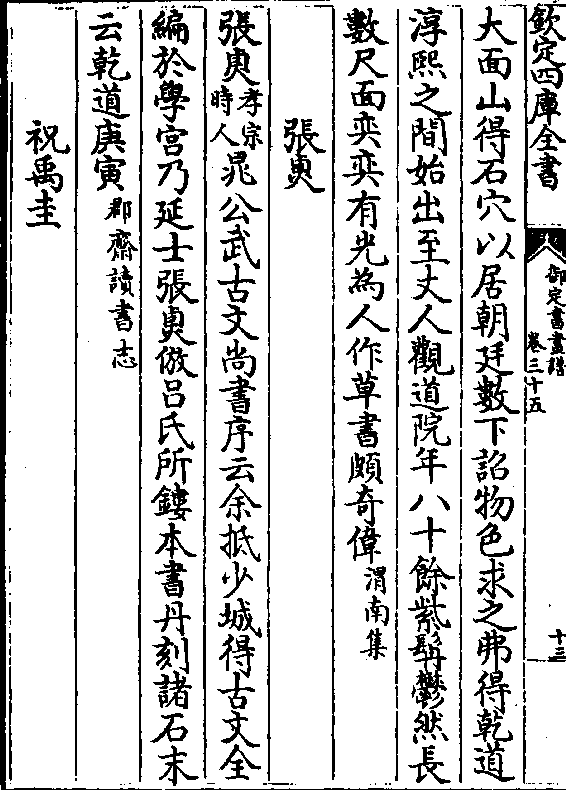 欽定四庫全書
御定書畫譜
卷三十五
十三
大面山得石穴以居朝廷數下詔物色求之弗得乾道
淳熙之間始出至丈人觀道院年八十餘紫髯鬱然長
數尺面奕奕有光為人作草書頗奇偉渭南集
張㬰
張㬰孝宗時人晁公武古文尚書序云余抵少城得古文全
編於學宫乃延士張㬰倣呂氏所鏤本書丹刻諸石末
云乾道庚寅郡齋讀書志
祝禹圭